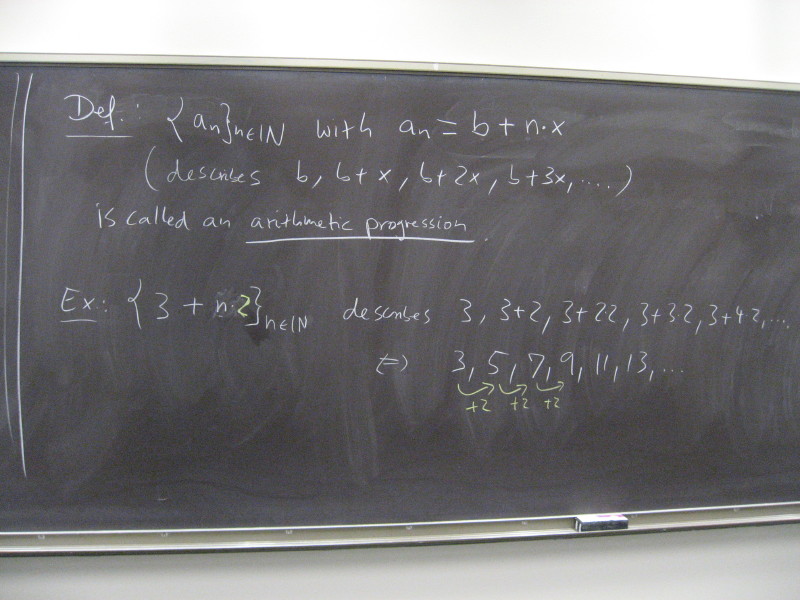 Def.: {an}n∈ℕ with an = b + n·x
(describes b, b+x, b+2x, b+3x, ....)
is called an arithmetic progression.
Ex: {3 + n·2}n∈ℕ describes 3, 3+2, 3+2·2, 3+3·2, 3+4·2, ...
⇔ 3, 5, 7, 9, 11, 13, ...
+2 +2 +2